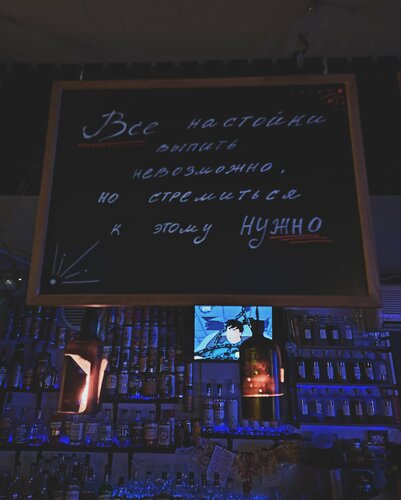 Все настойки
выпить
невозможно,
но стремиться
к этому нужно